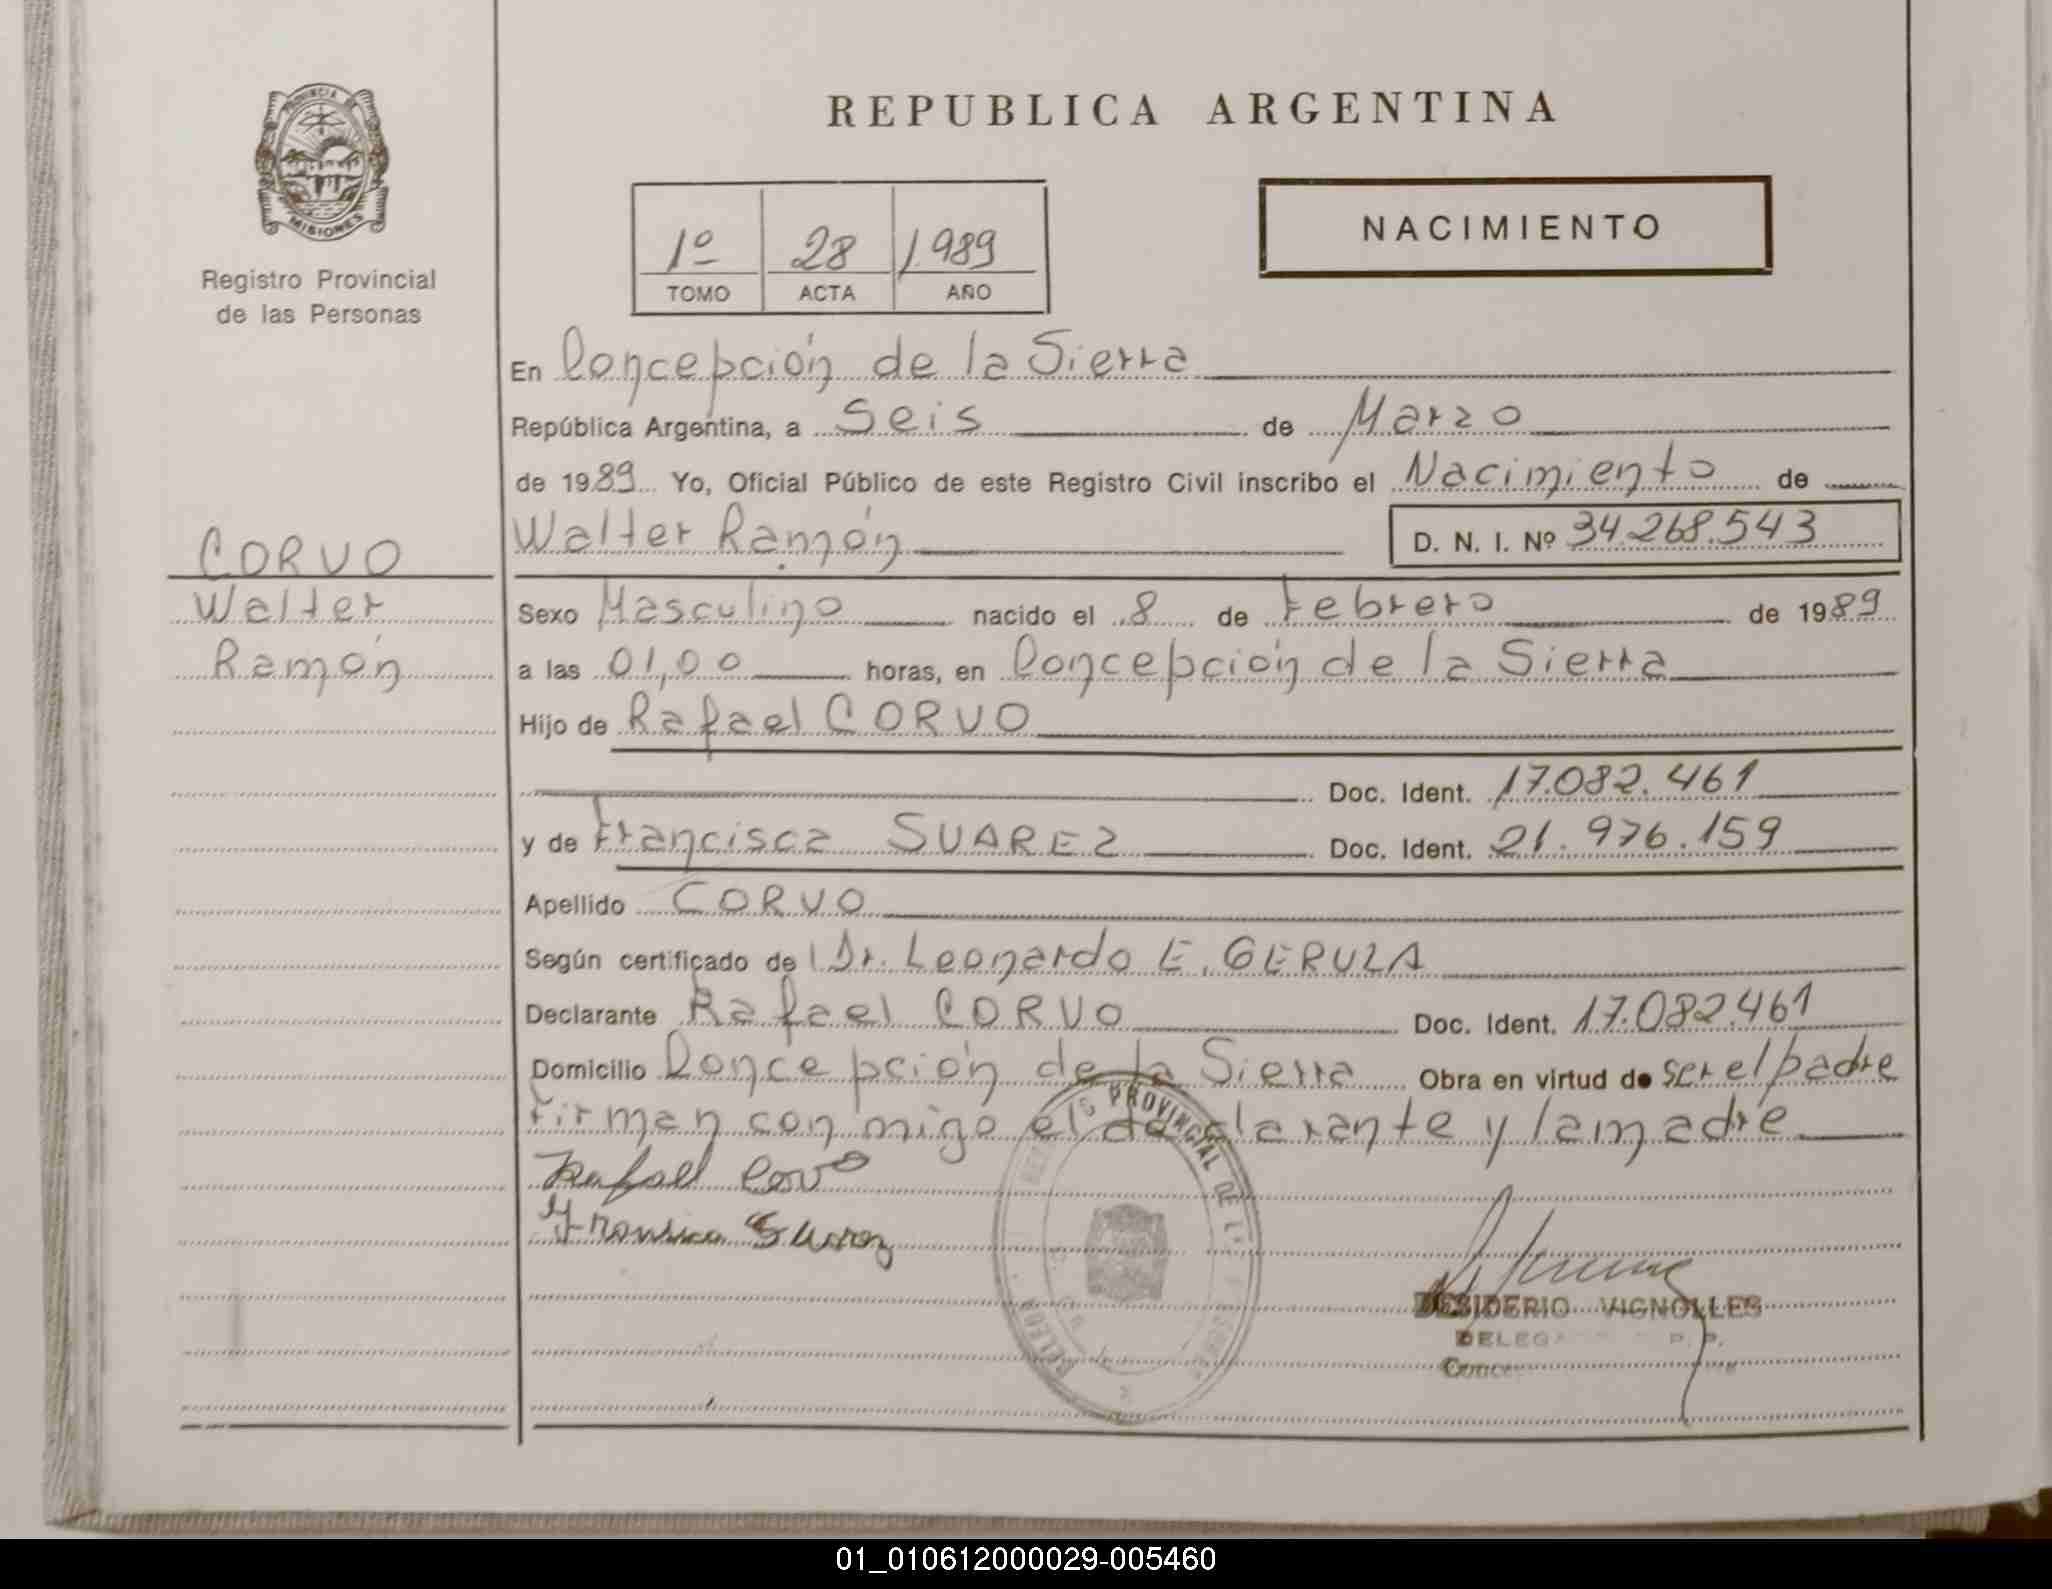 PROVINCIA DE
MISIONES
Registro Provincial
de las Personas
REPUBLICA ARGENTINA
NACIMIENTO
1º 28 1.989
TOMO ACTA AÑO
En Concepción de la Sierra
República Argentina, a Seis de Marzo
de 1989 Yo, Oficial Público de este Registro Civil inscribo el Nacimiento de
Walter Ramón D. N. I. Nº 34.268.543
CORVO
Walter
Ramón
Sexo Masculino nacido el 8 de Febrero de 1989
a las 01,00 horas, en Concepción de la Sierra
Hijo de Rafael CORVO
Doc. Ident. 17.082.461
y de Francisca SUAREZ Doc. Ident. 21.976.159
Apellido CORVO
Según certificado del Dr. Leonardo E. GERULA
Declarante Rafael CORVO Doc. Ident. 17.082.461
Domicilio Concepción de la Sierra Obra en virtud de ser el padre
Firman con migo el declarante y la madre
Rafael Corvo
Suarez
PROVINCIAL DE
DESIDERIO VIGNOLLES
01_010612000029-005460